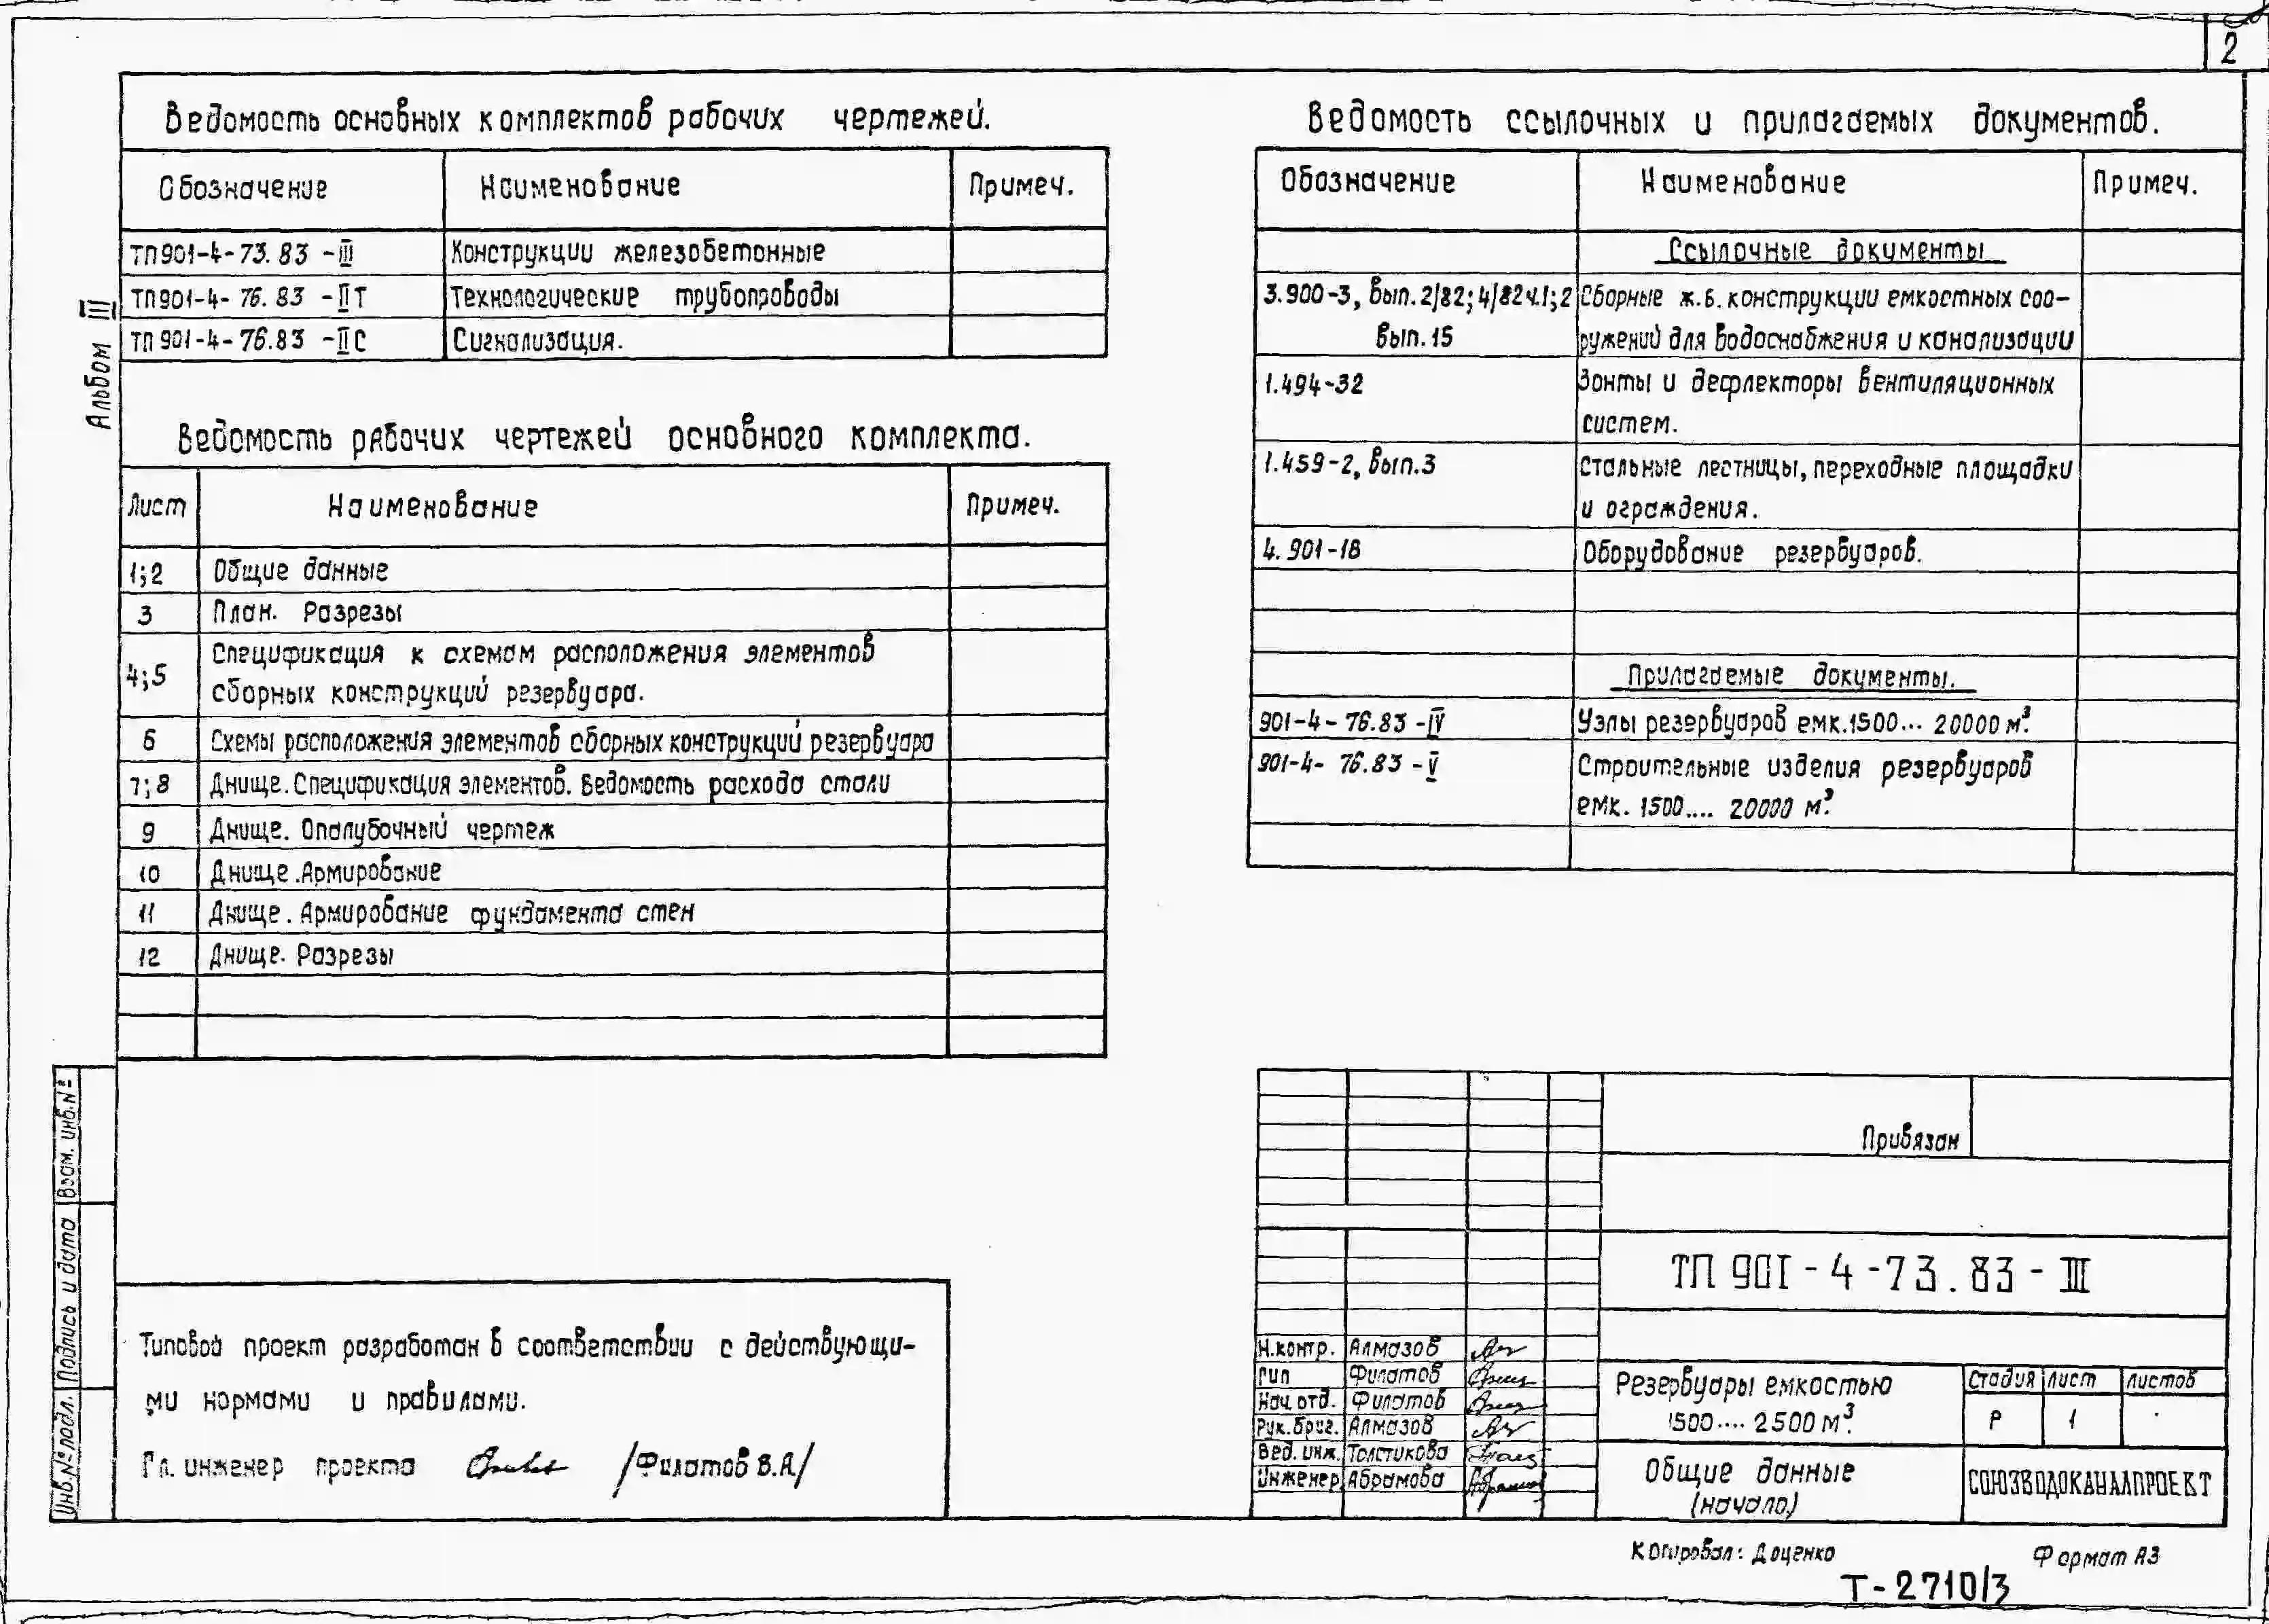 2
Альбом III
Ведомость основных комплектов рабочих чертежей.
Обозначение Наименование Примеч.
ТП901-4-73.83 -III Конструкции железобетонные
ТП901-4-76.83 -IIТ Технологические трубопроводы
ТП901-4-76.83 -IIС Сигнализация.
Ведомость рабочих чертежей основного комплекта.
Лист Наименование Примеч.
1;2 Общие данные
3 План. Разрезы
4;5 Спецификация к схемам расположения элементов
сборных конструкций резервуара.
6 Схемы расположения элементов сборных конструкций резервуара
7;8 Днище. Спецификация элементов. Ведомость расхода стали
9 Днище. Опалубочный чертеж
10 Днище. Армирование
11 Днище. Армирование фундамента стен
12 Днище. Разрезы
Ведомость ссылочных и прилагаемых документов.
Обозначение Наименование Примеч.
Ссылочные документы
3.900-3, вып.2/82; 4/82ч.1;2 Сборные ж.б. конструкции емкостных соо-
вып.15 ружений для водоснабжения и канализации
1.494-32 Зонты и дефлекторы вентиляционных
систем.
1.459-2, вып.3 Стальные лестницы, переходные площадки
и ограждения.
4.901-18 Оборудование резервуаров.
Прилагаемые документы.
901-4-76.83 -IV Узлы резервуаров емк.1500... 20000 м³.
901-4-76.83 -V Строительные изделия резервуаров
емк. 1500.... 20000 м³.
Взам. инв.№
Подпись и дата
Инв.№ подл.
Типовой проект разработан в соответствии с действующи-
ми нормами и правилами.
Гл. инженер проекта /Филатов В.А/
Привязан
ТП 901-4-73.83-III
Н.контр. Алмазов
Гип Филатов
Нач.отд. Филатов
Рук.бриг. Алмазов
Вед. инж. Толстикова
Инженер Абрамова
Резервуары емкостью
1500.... 2500 м³.
Стадия Лист Листов
Р 1
Общие данные
(начало)
СОЮЗВОДОКАНАЛПРОЕКТ
Копировал: Доценко Формат А3
Т-2710/3